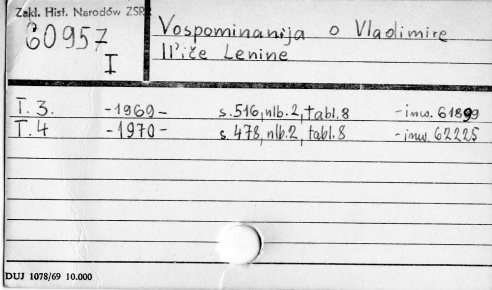 Zakl. Hist. Narodów ZSRR
60957
I
Vospominanija o Vladimire
Il'iče Lenine
T. 3. -1969- s. 516, nlb. 2, tabl. 8 -inw. 61899
T. 4 -1970- s. 478, nlb. 2, tabl. 8 -inw. 62225
DUJ 1078/69 10.000